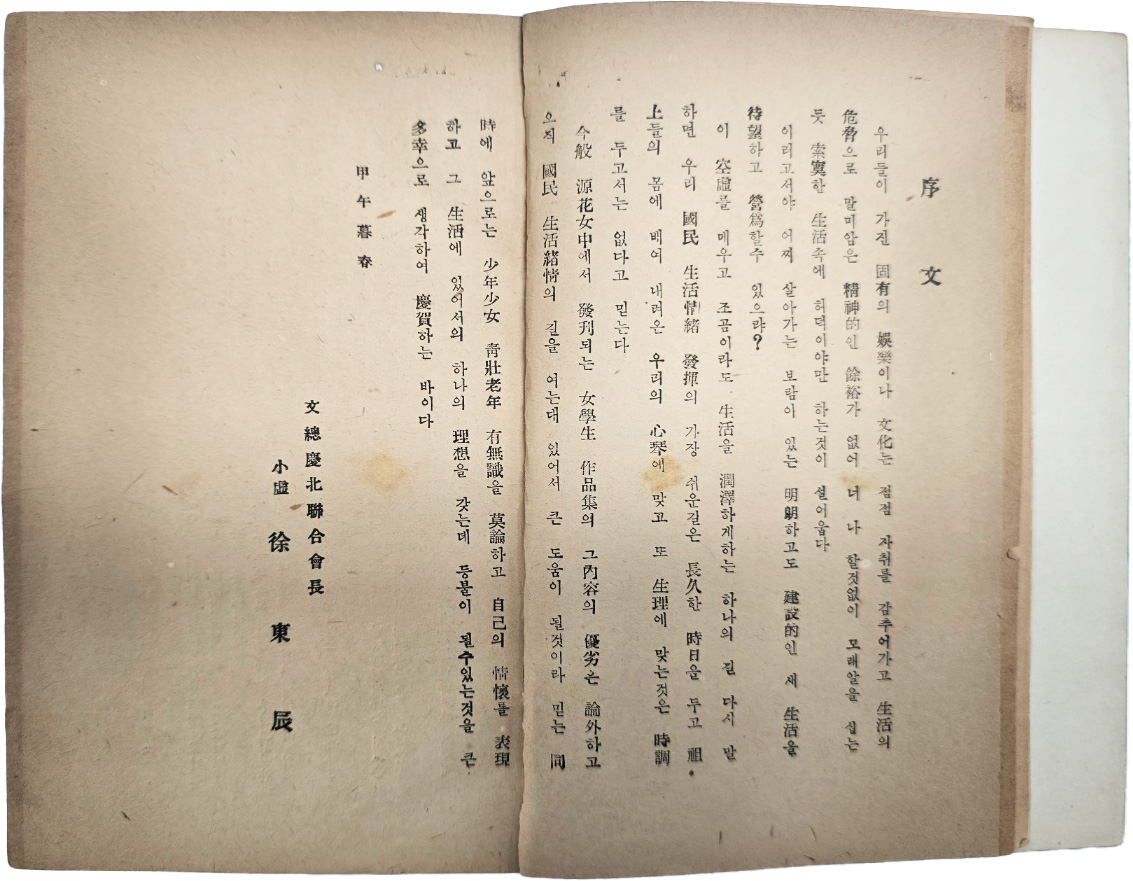 序文
우리들이 가진 固有의 娛樂이나 文化는 점점 자취를 감추어가고 生活의
危脅으로 말미암은 精神的인 餘裕가 없어 너 나 할것없이 모래알을 씹는
듯 索寞한 生活속에 허덕이야만 하는것이 설어웁다
이러고서야 어찌 살아가는 보람이 있는 明朗하고도 建設的인 새 生活을
待望하고 營爲할수 있으랴?
이 空虛를 메우고 조곰이라도 生活을 潤澤하게하는 하나의 길 다시 말
하면 우리 國民 生活情緖 發揮의 가장 쉬운길은 長久한 時日을 두고 祖
上들의 몸에 배여 내려온 우리의 心琴에 맞고 또 生理에 맞는것은 時調
를 두고서는 없다고 믿는다
今般 源花女中에서 發刊되는 女學生 作品集의 그內容의 優劣은 論外하고
오직 國民 生活緖情의 길을 여는대 있어서 큰 도움이 될것이라 믿는 同
時에 앞으로는 少年少女 靑壯老年 有無識을 莫論하고 自己의 情懷를 表現
하고 그 生活에 있어서의 하나의 理想을 갖는데 등불이 될수있는것을 큰
多幸으로 생각하여 慶賀하는 바이다
甲午暮春
文總慶北聯合會長
小虛 徐東辰